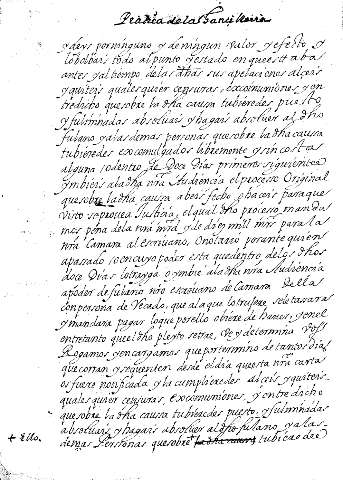 Pratica de la Chançilleria
y deis por ninguno y de ningun valor y efecto, y
lo bolbais todo al punto y estado en que estaba
antes y al tiempo de las dhas sus apelaciones alceis
y quiteis qualesquier censuras, excomuniones, y en
tredicho que sobre la dha causa tubieredes puesto,
y fulminadas absolvais y hagais absolver al dho
fulano y a las demas personas que sobre la dha causa
tubieredes excomulgados libremente y sin costa
alguna dentro de Doce Dias primeros siguientes
ymbieis a la dha nra Audiencia el processo Original
que sobre la dha causa abeis fecho y haceis para que
Visto se provea Justicia, el qual dho proceso manda
mos pena de la nra mrd, y de diez mill mrs para la
nra Camara al escrivano, o notario por ante quien
a pasado o en cuyo poder esta que dentro de los dhos
doce Dias lo trayga o ymbie a la dha nra Audiencia
a poder de fulano nro escrivano de Camara Della
con persona de Recado, que al que lo truxere se le tasara
y mandara pagar lo que por ello obiere de haver, y en el
entretanto que el dho pleyto se trae, Ve y determina Vos
Rogamos, y encargamos que por termino de tantos dias
que corran y se quenten desde el dia que esta nra carta
os fuere notificada y la cumplieredes alceis y quiteis
quales quier censuras, excomuniones, y entredicho
que sobre la dha causa tubieredes puesto, y fulminadas
absolvais y hagais absolver al dho fulano, y a las
demas Personas que sobre la dha causa tubieredes
+ Ello.